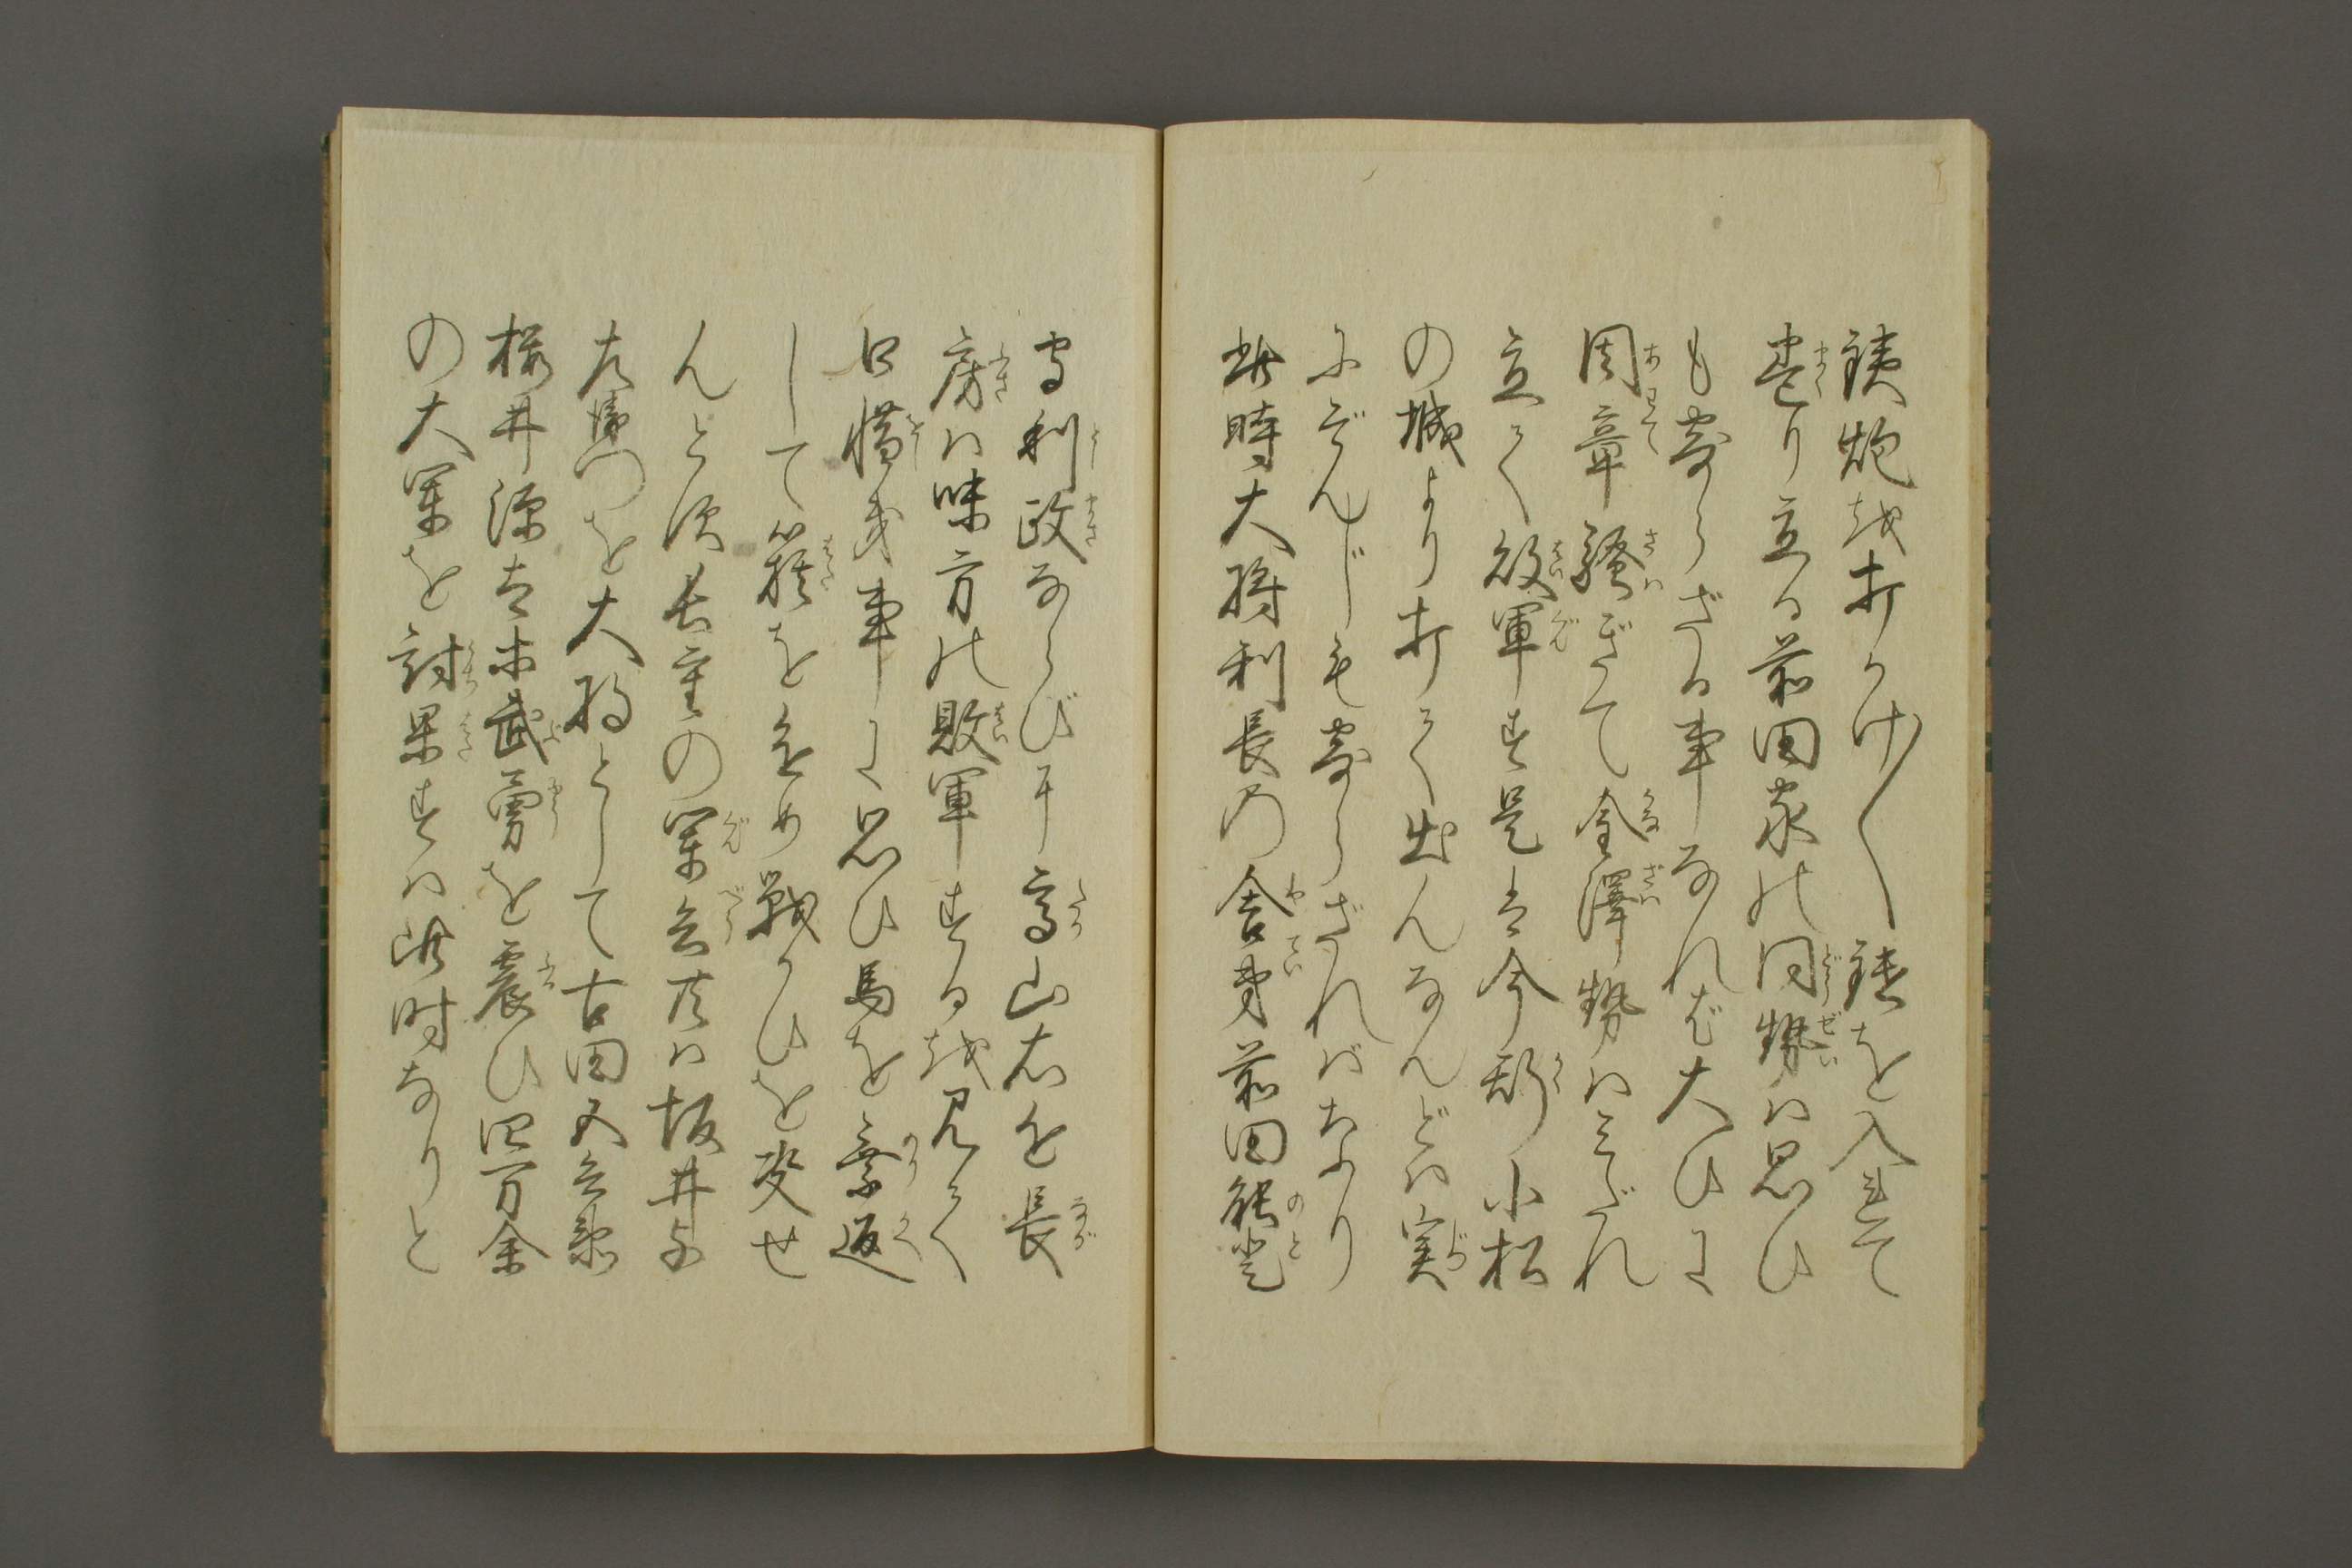 鉄炮越打かけ〳〵鎗を入立て
巻り立る前田家の同勢ハ思ひ
も寄らざる事なれば大ひに
周章騒ぎて金澤勢ハみだれ
立て敗軍す是は今形小松
の城より打て出んなんどハ実
にぞんじも寄らざれバなり
此時大将利長の舎弟前田能登
守利政ならび于高山右近長
房ハ味方の敗軍する越見て
口惜き事に思ひ馬を乗返
して籏をすゝめ戦かひを交せ
んとす長重の軍兵共ハ坂井与
左衛門を大将として古田五兵衛
桜井源吉等武勇を震ひ四万余
の大軍を討果すハ此時なりと